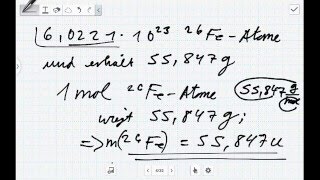 6,0221 · 10²³ ²⁶Fe-Atome
und erhält 55,847 g
1 mol ²⁶Fe-Atome 55,847 g/mol
wiegt 55,847 g;
=> m(²⁶Fe) = 55,847 u